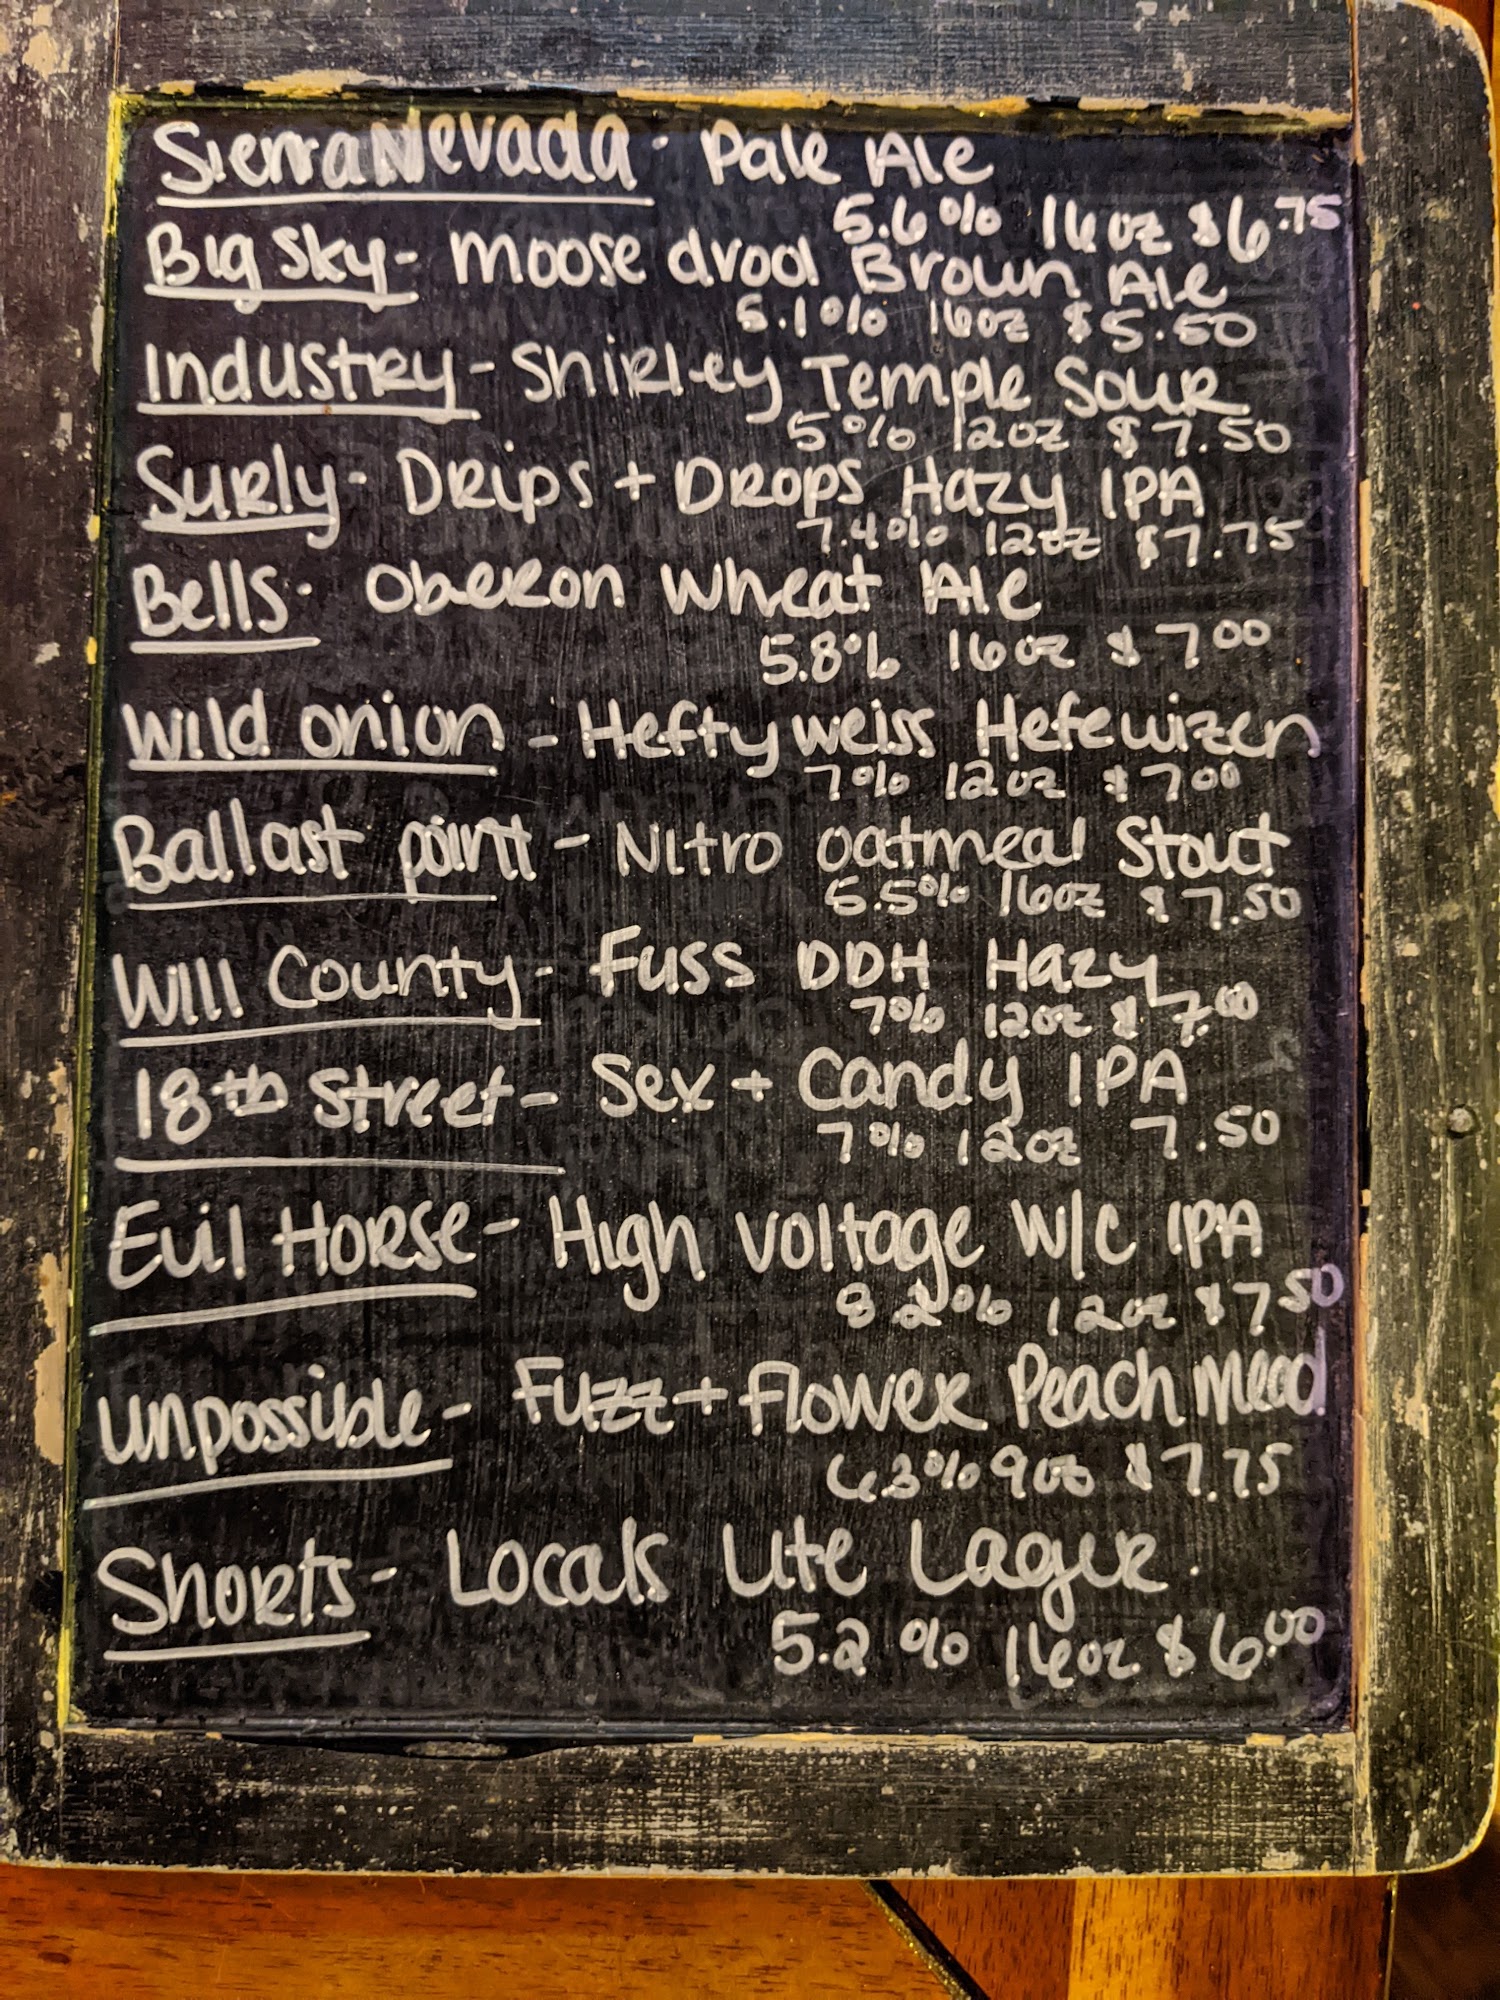 Sierra Nevada - Pale Ale
5.6% 16oz $6.75
Big Sky - Moose drool Brown Ale
5.1% 16oz $5.50
Industry - Shirley Temple Sour
5% 12oz $7.50
Surly - Drips + Drops Hazy IPA
7.4% 12oz $7.75
Bells - Oberon Wheat Ale
5.8% 16oz $7.00
Wild Onion - Hefty weiss Hefewizen
7% 12oz $7.00
Ballast point - Nitro Oatmeal Stout
5.5% 16oz $7.50
Will County - Fuss DDH Hazy
7% 12oz $7.00
18th Street - Sex + Candy IPA
7% 12oz 7.50
Evil Horse - High Voltage W/C IPA
8.2% 12oz $7.50
Unpossible - Fuzz + Flower Peach Mead
6.3% 9oz $7.75
Shorts - Locals Lite Lager.
5.2% 16oz $6.00